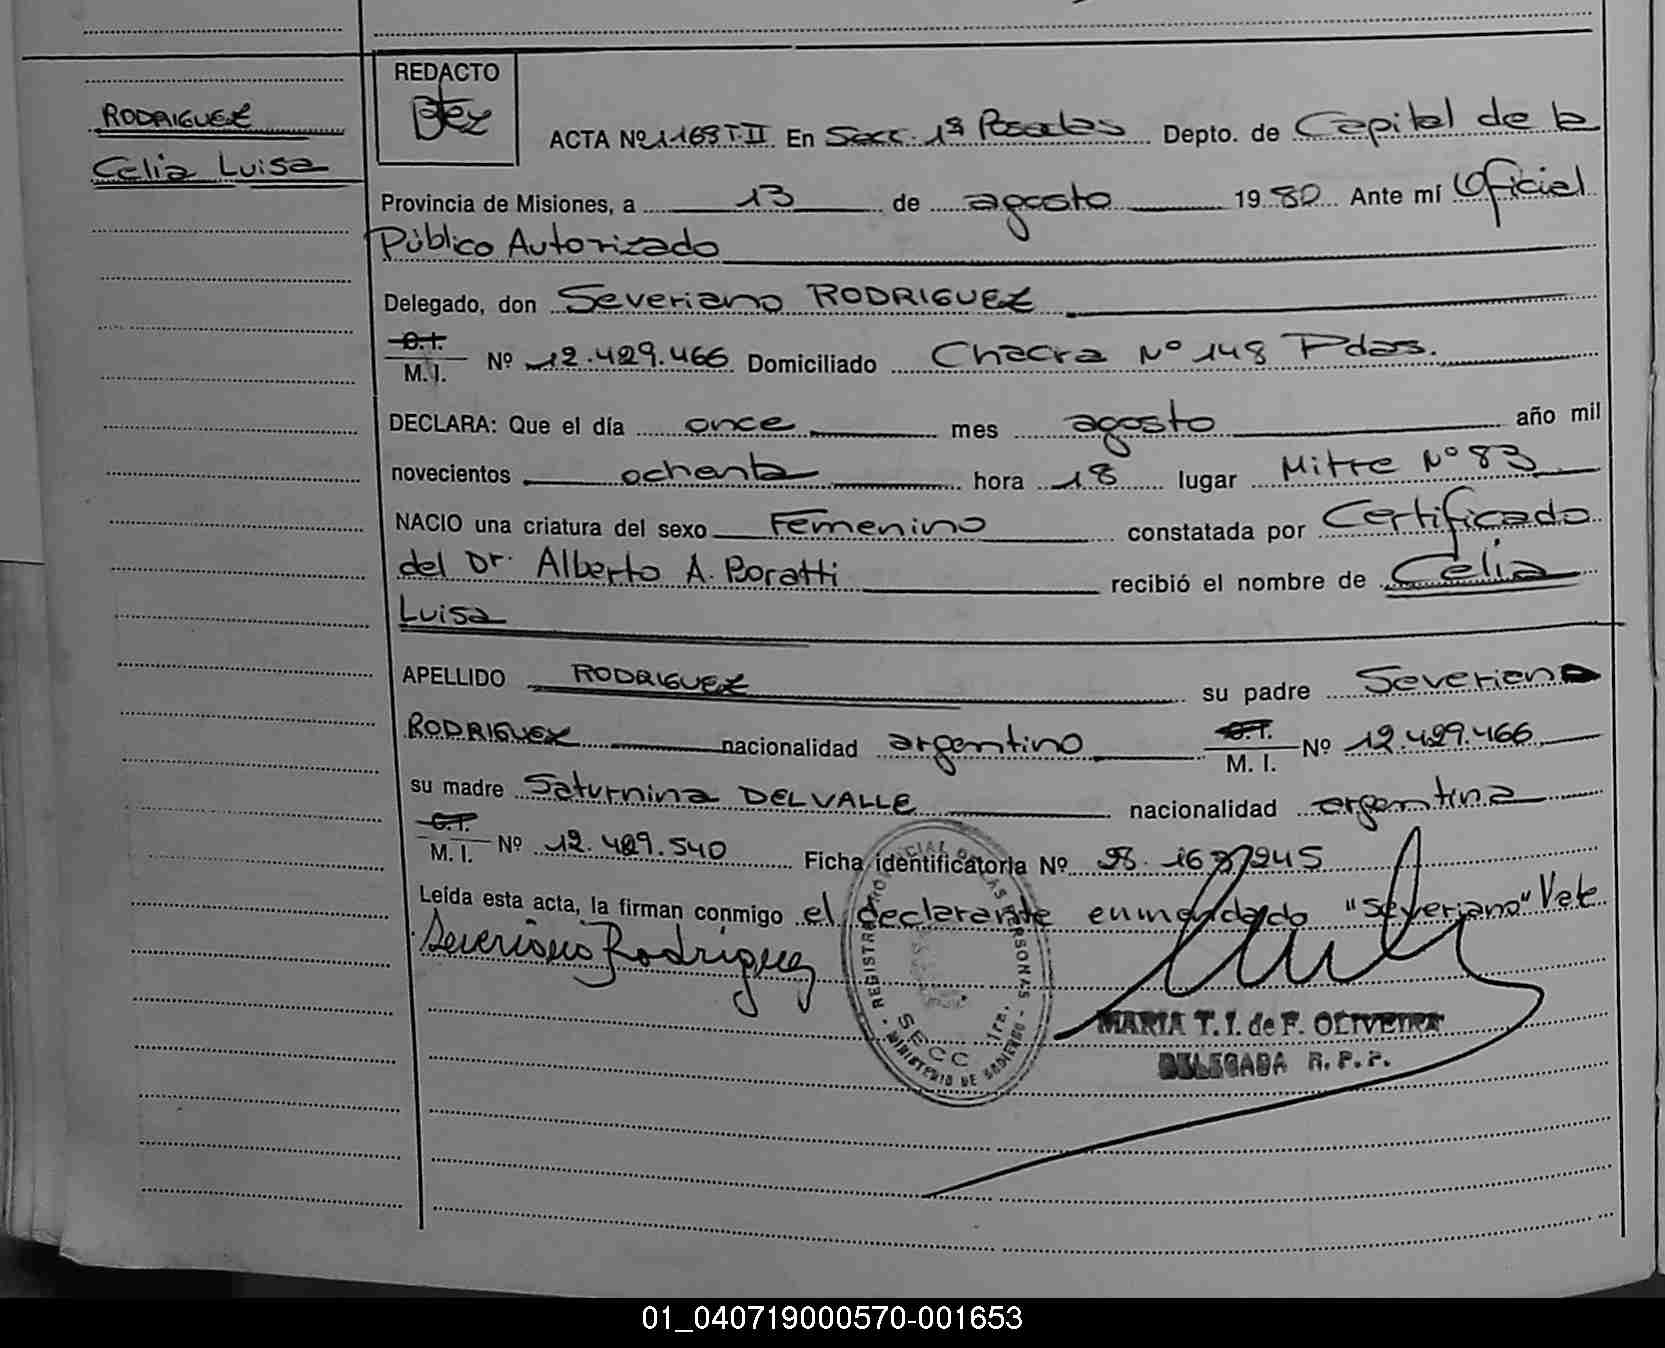 RODRIGUEZ
Celia Luisa
REDACTO
ACTA Nº 1163 T·II En Secc. 1ª Posadas Depto. de Capital de la
Provincia de Misiones, a 13 de agosto 1980 Ante mí Oficial
Público Autorizado
Delegado, don Severiano RODRIGUEZ
C.I.
M.I. Nº 12.429.466 Domiciliado Chacra Nº 148 Pdas.
DECLARA: Que el día once mes agosto año mil
novecientos ochenta hora 18 lugar Mitre Nº 83
NACIO una criatura del sexo Femenino constatada por Certificado
del Dr. Alberto A. Boratti recibió el nombre de Celia
Luisa
APELLIDO RODRIGUEZ su padre Severiano
RODRIGUEZ nacionalidad argentino C.I.
M. I. Nº 12.429.466
su madre Saturnina DELVALLE nacionalidad argentina
C.I.
M. I. Nº 12.429.540 Ficha identificatoria Nº
Leída esta acta, la firman conmigo el declarante enmendado "Severiano" Vale
Severiano Rodriguez
REGISTRO PROVINCIAL DE LAS PERSONAS
SECC 1ra.
MINISTERIO DE GOBIERNO
MARIA T. I. de F. OLIVEIRA
DELEGADA R. P. P.
01_040719000570-001653